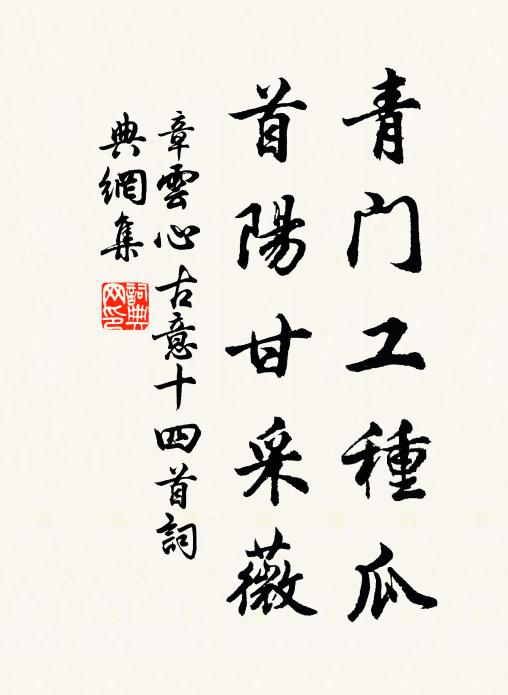 青门工種瓜
首陽甘采薇
章雲心古意十四首詞
典網集
詞典
网印